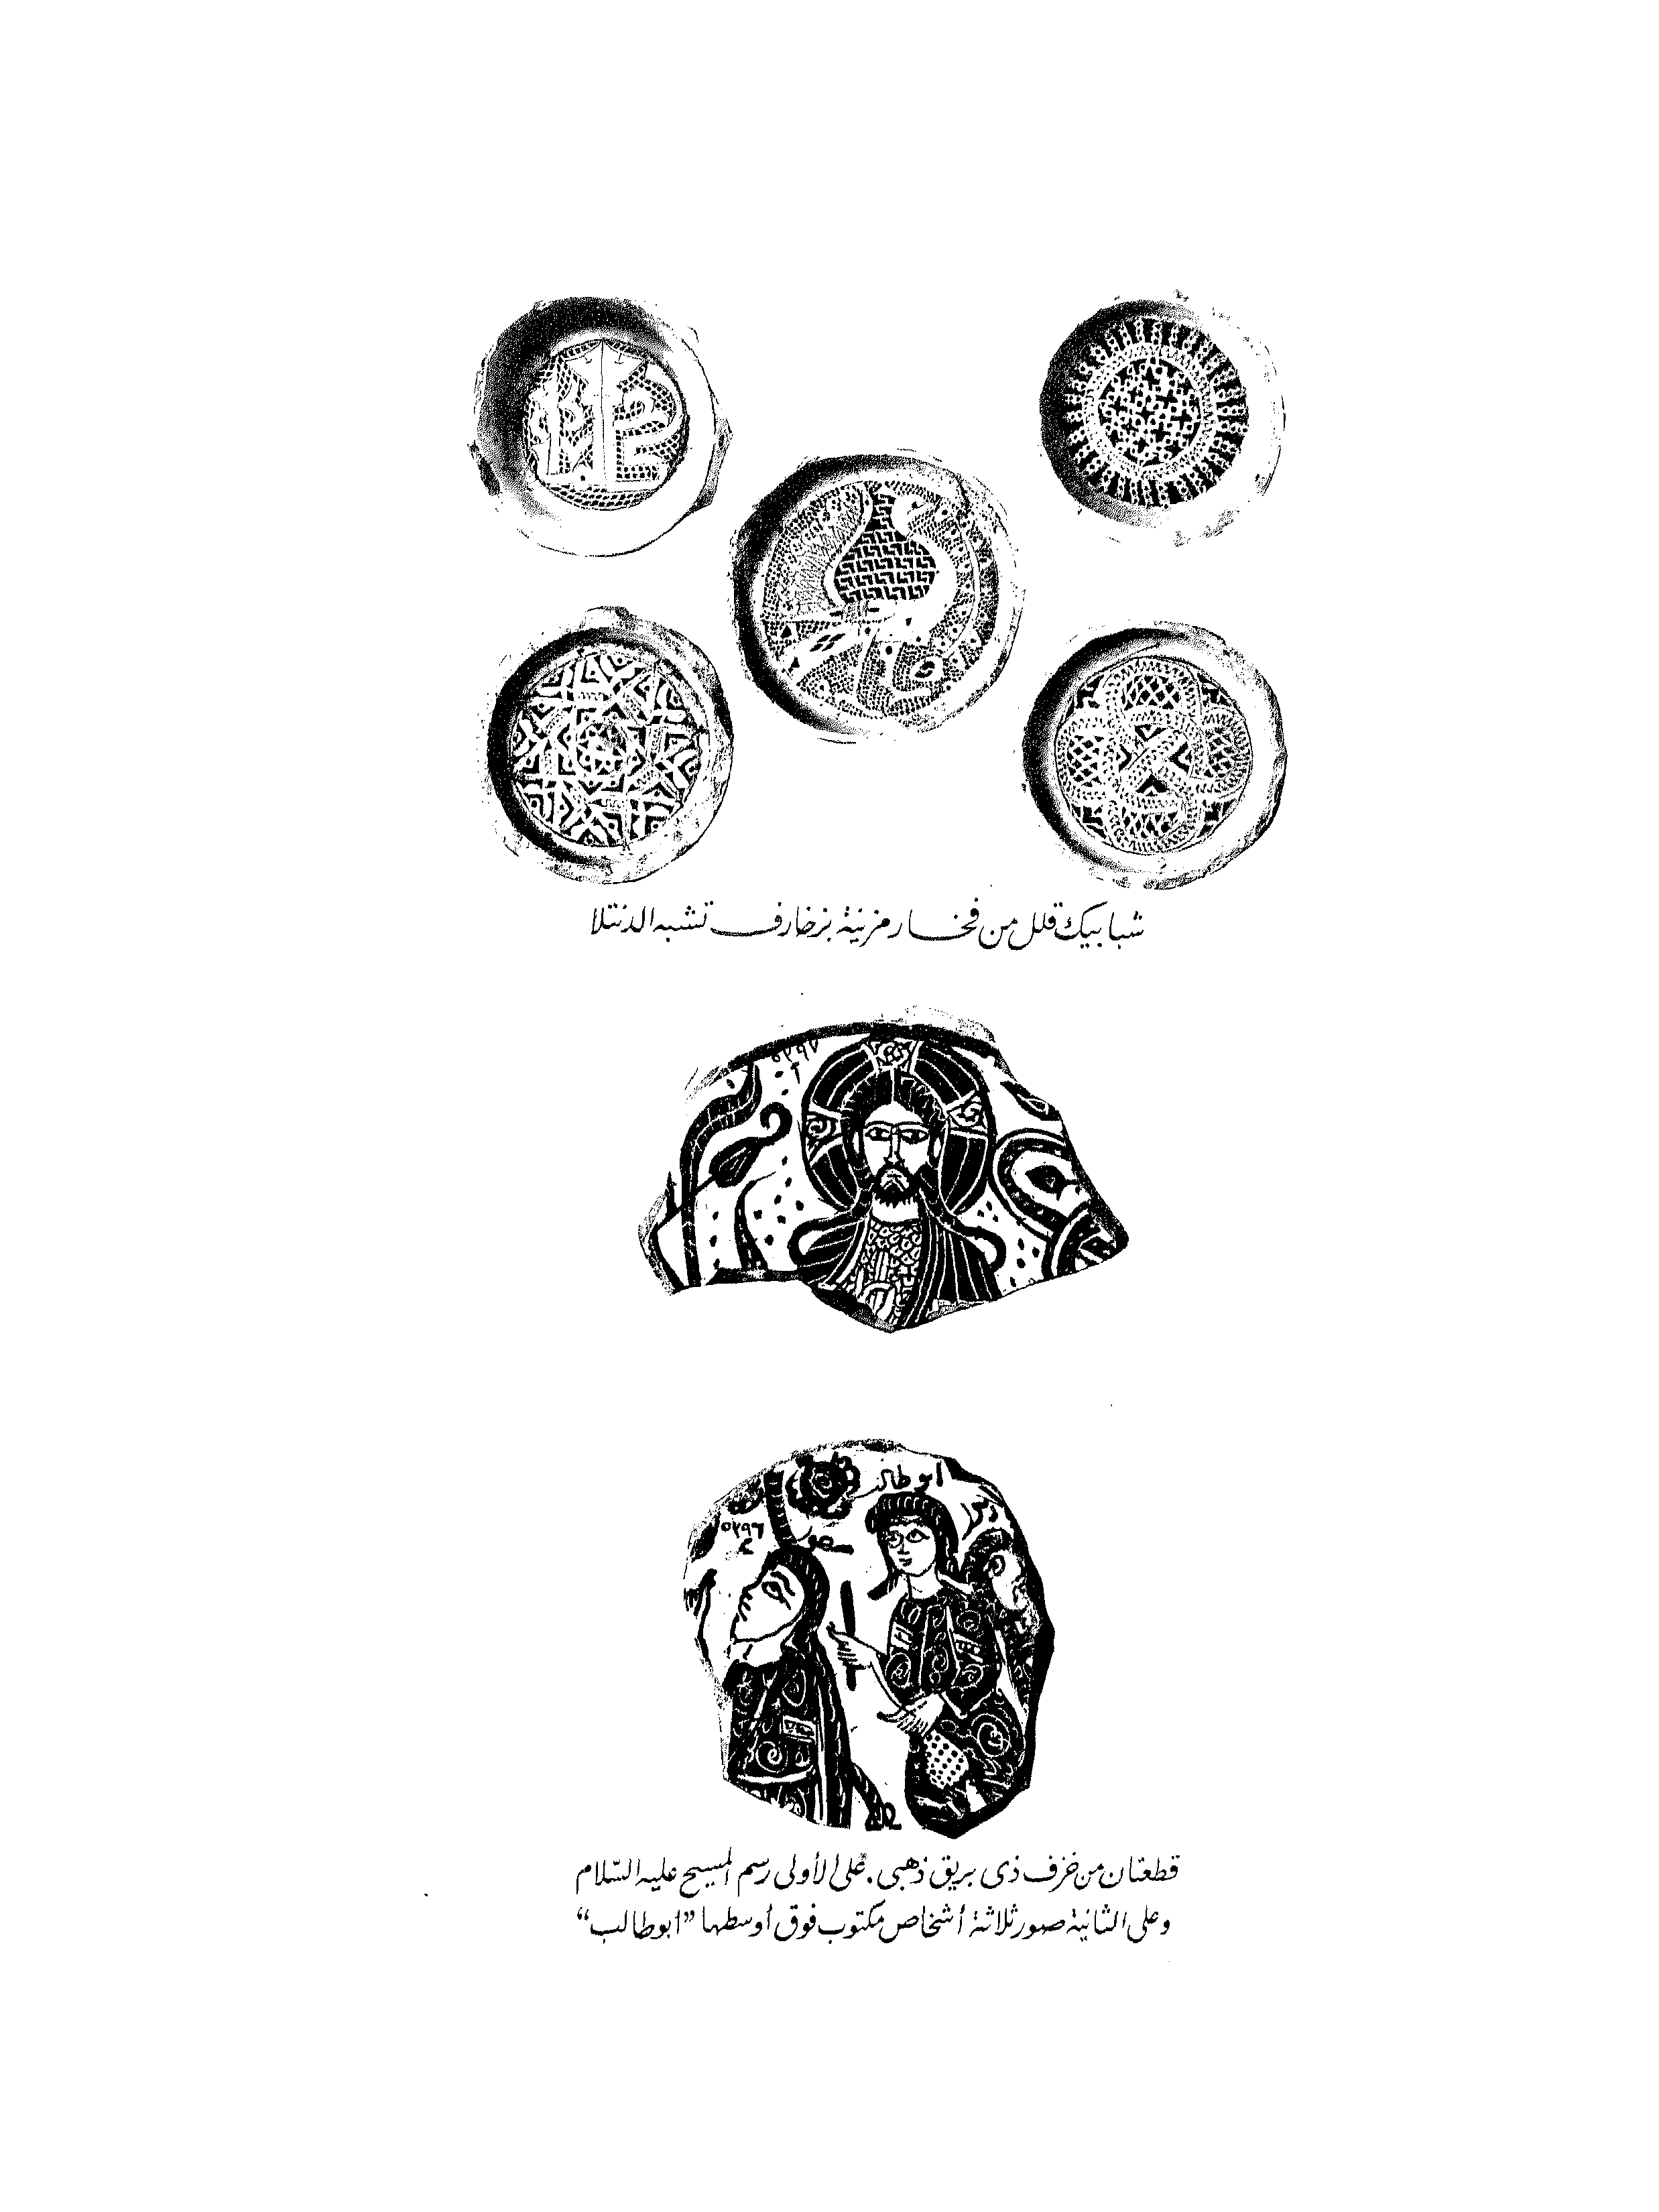 شبابيك قلل من فخار مزينة بزخارف تشبه الدنتلا
٥٣٩٧
٢
ابو طالب
٥٣٩٦
٤
قطعتان من خزف ذى بريق ذهبى. على الأولى رسم المسيح عليه السّلام
وعلى الثانية صور ثلاثة أشخاص مكتوب فوق أوسطها "ابوطالب"